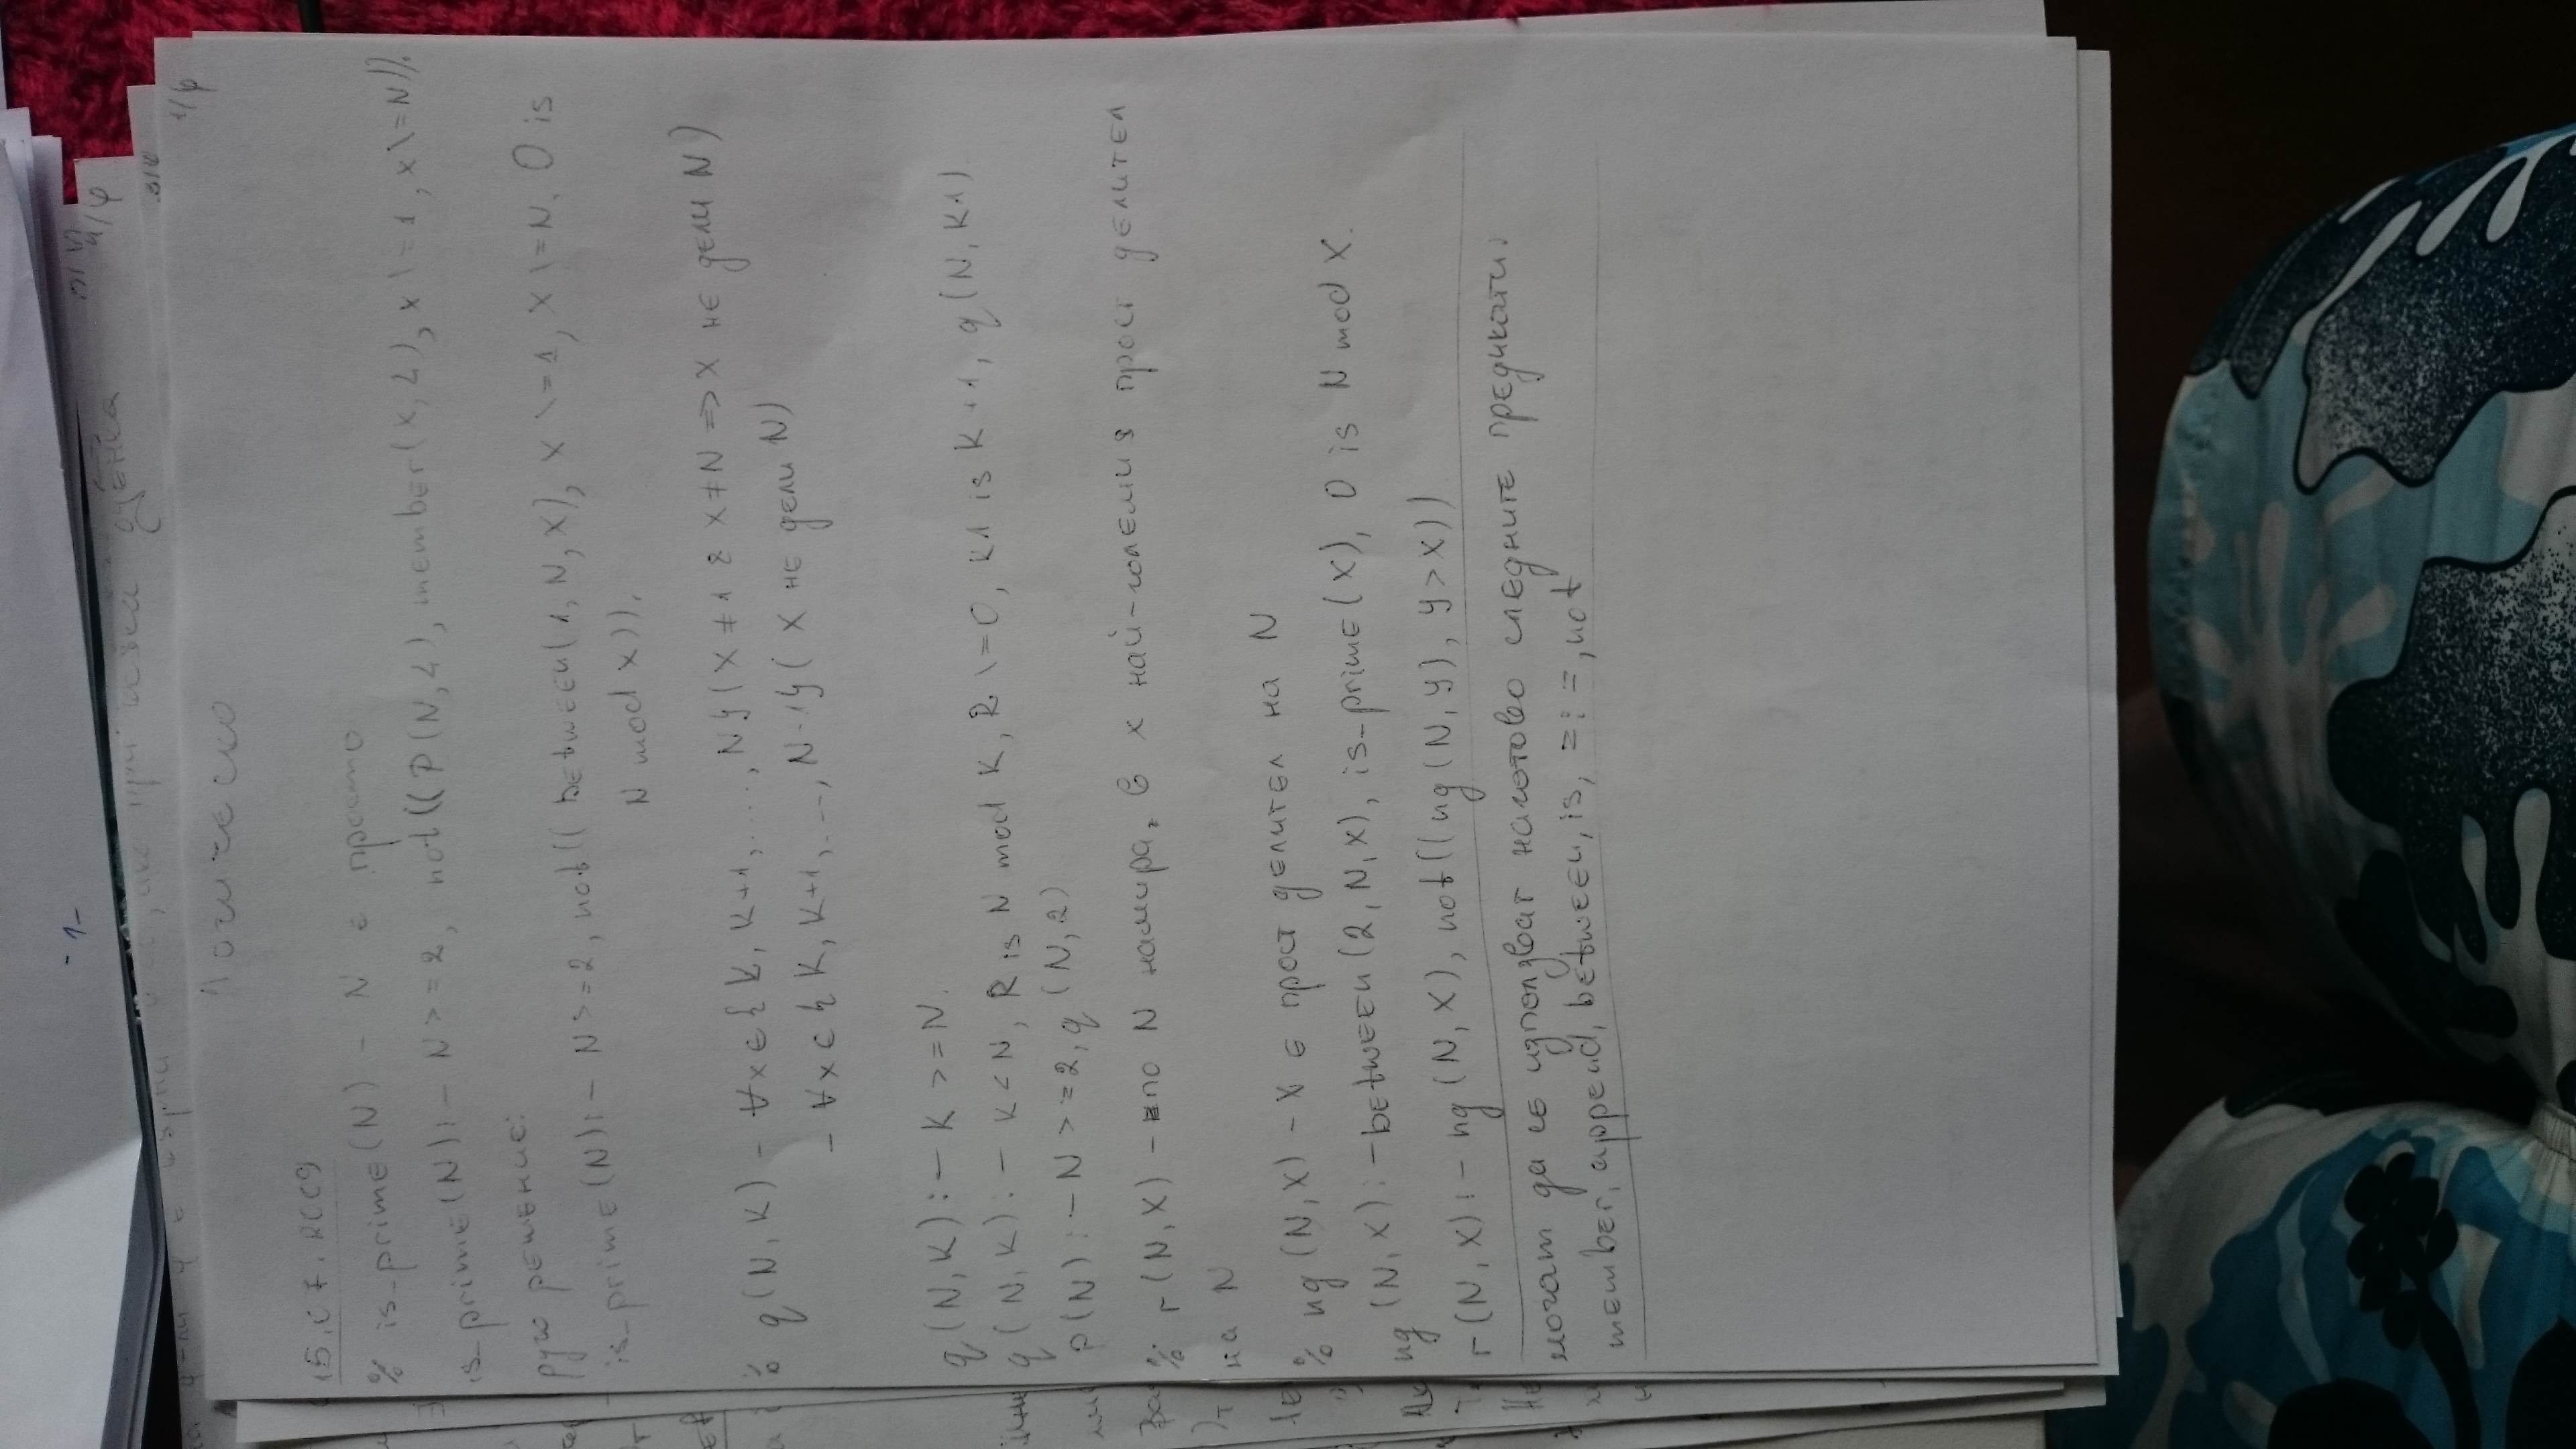 Логическо
1/ф
15.07.2009
% is_prime(N) - N е просто
is_prime(N):- N>=2, not((P(N,L), member(X,L), X\=1, X\=N)).
друго решение:
is_prime(N):- N>=2, not((between(1,N,X), X\=1, X\=N, 0 is
N mod X)).
% q(N,K) - ∀x∈{K,K+1,....,N}(X≠1 & X≠N => X не дели N)
- ∀x∈{K,K+1,...,N-1}(X не дели N)
q(N,K):- K>=N.
q(N,K):- K<N, R is N mod K, R\=0, K1 is K+1, q(N,K1).
p(N):- N>=2, q(N,2)
% r(N,X) - по N намира в X най-големия прост делител
на N
% ng(N,X) - X е прост делител на N
ng(N,X):- between(2,N,X), is_prime(X), 0 is N mod X.
r(N,X):- ng(N,X), not((ng(N,Y), Y>X))
могат да се използват наготово следните предикати:
member, append, between, is, =:=, not
- 1 -